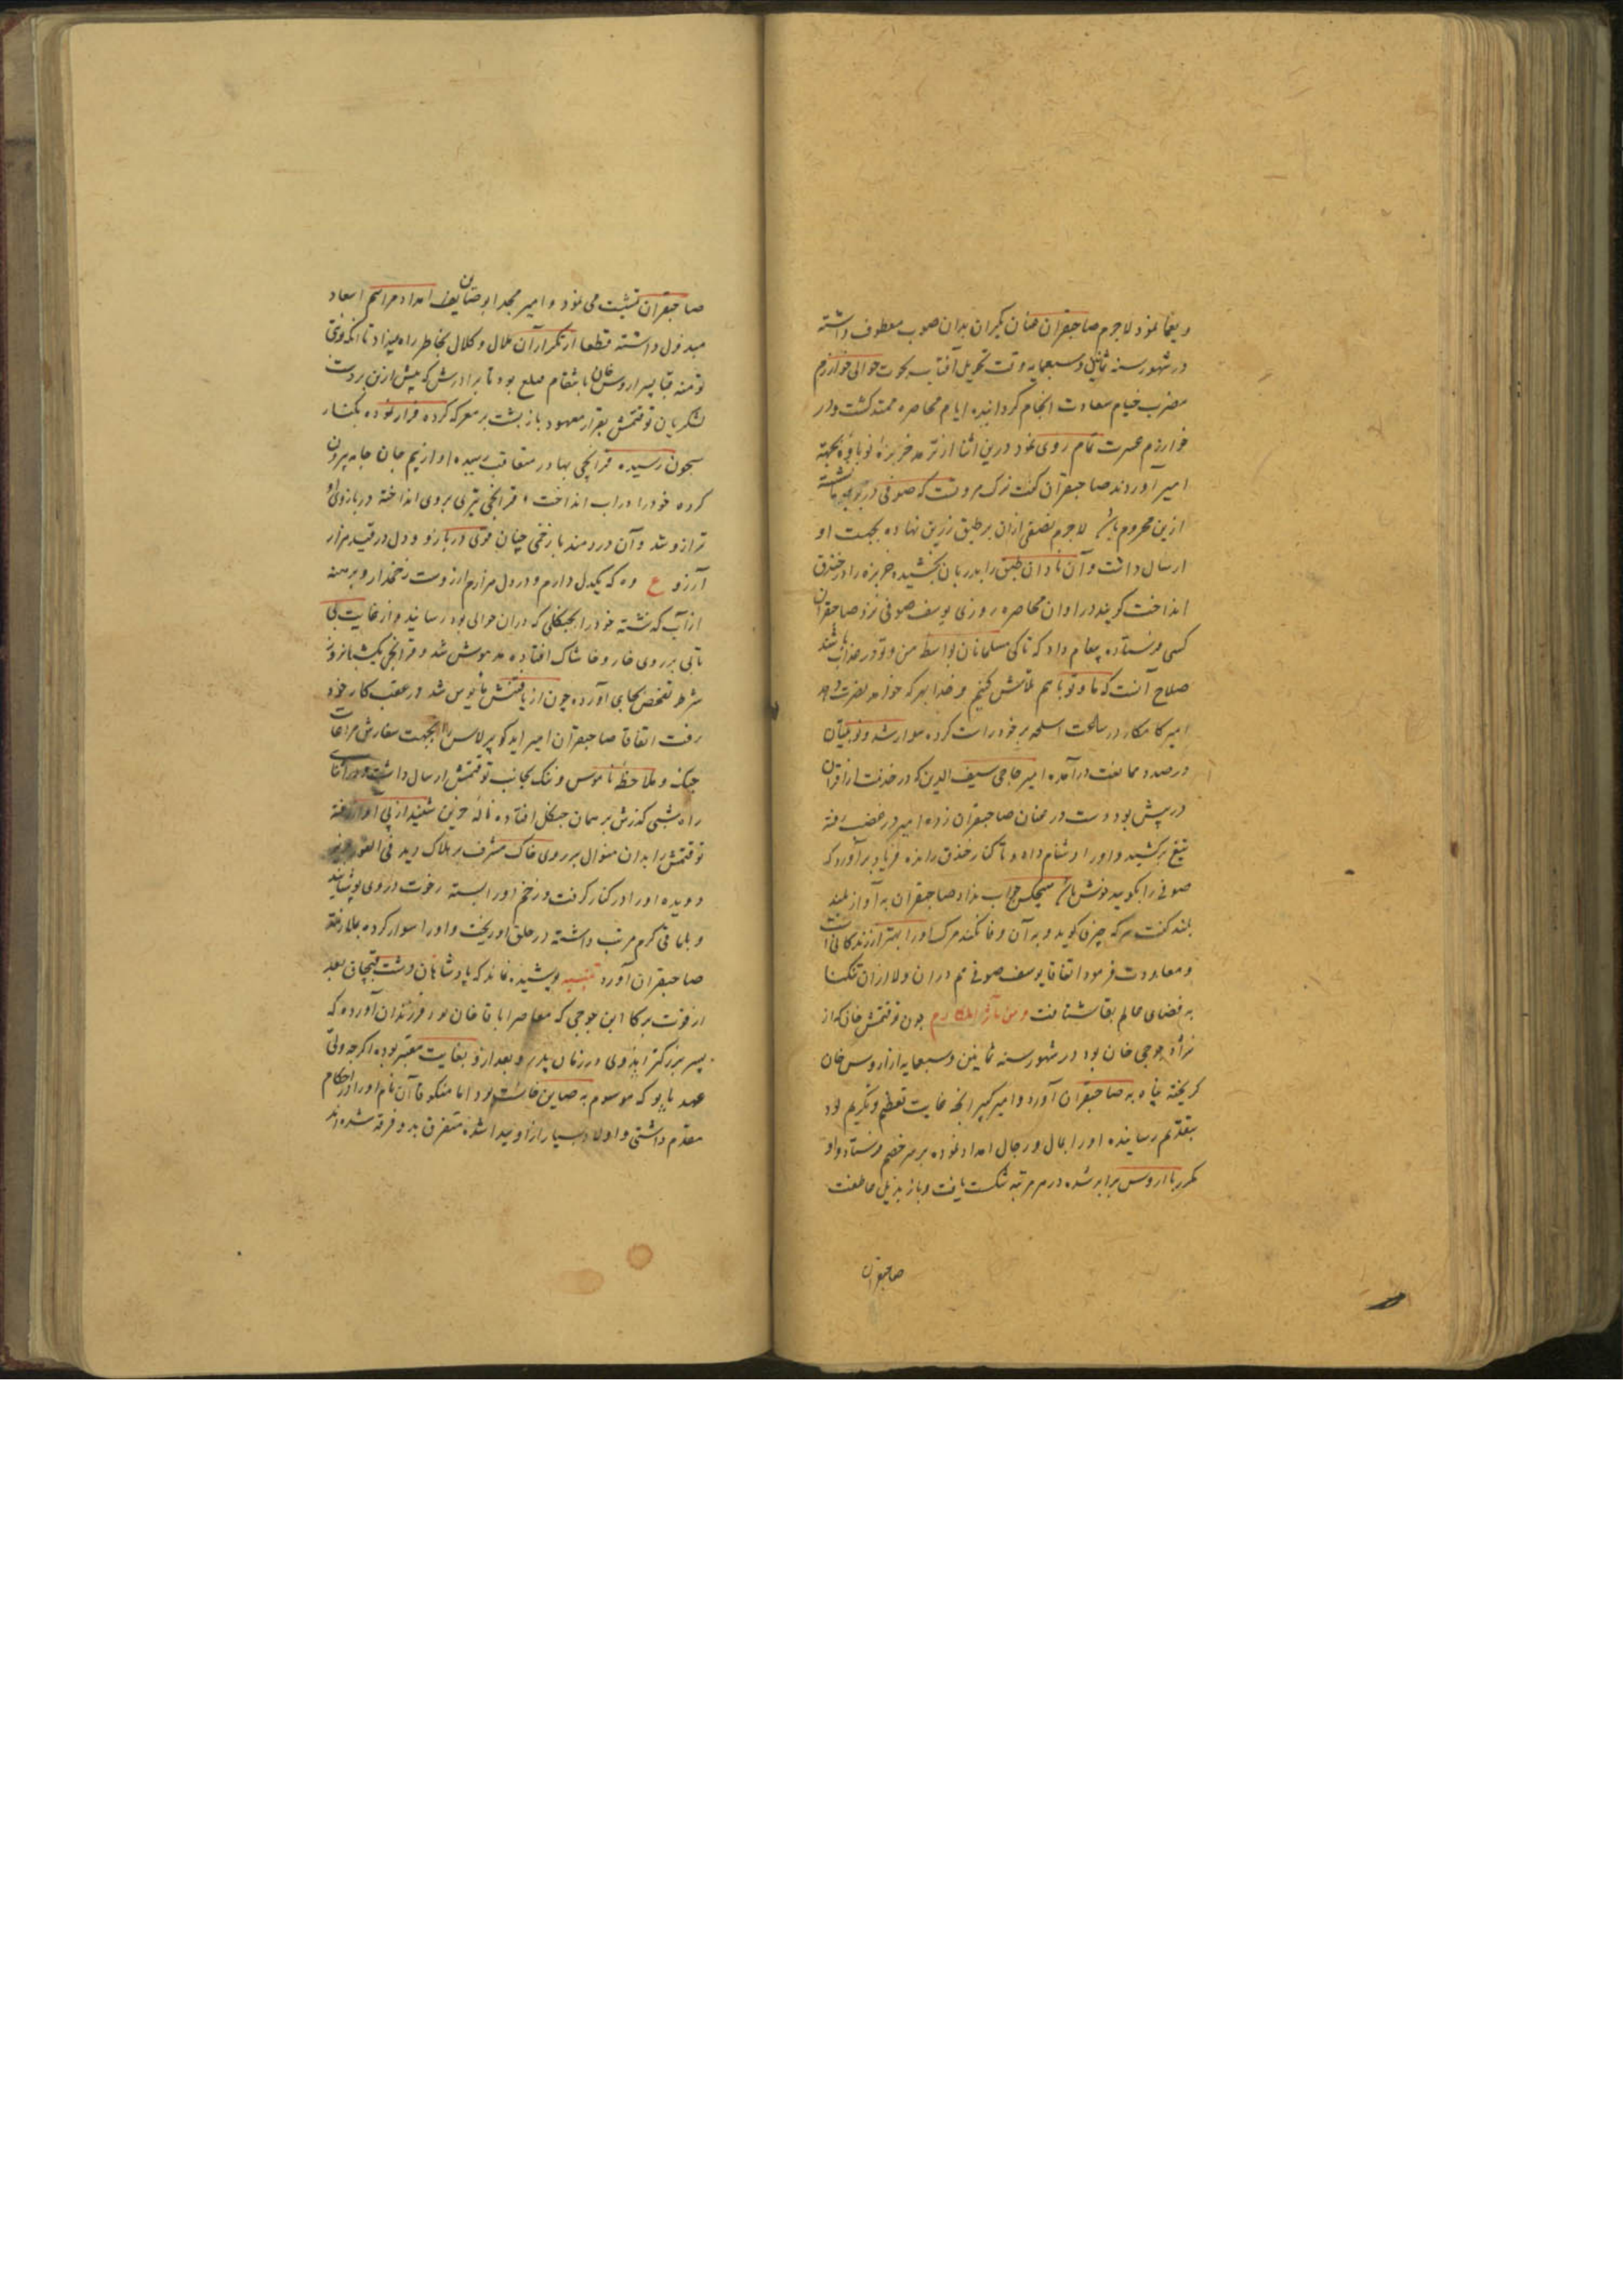 و یغما نمود لاجرم صاحبقران عنان یکران بدان صوب معطوف داشته
در شهور سنه ثمانین و سبعمایه وقت تحویل آفتاب بحوت حوالی خوارزم
مضرب خیام سعادت انجام گردانیده ایام محاصره ممتد گشت و در
خوارزم عسرت تمام روی نمود درین اثنا از ترمد خربزهٔ نوباوه بجهته
امیر آوردند صاحبقران گفت ترک مروتست که صوفی در
ازین محروم باشد لاجرم نصفی ازان بر طبق زرین نهاده بجهت او
ارسال داشت و آن نادان طبق را بدربان بخشیده خربزه را در خندق
انداخت گویند در اوان محاصره روزی یوسف صوفی نزد صاحبقران
کسی فرستاده پیغام داد که تا کی مسلمانان بواسطه من و تو در عذاب باشند
صلاح آنست که ما و تو با هم تلاش کنیم و خدا بهر که خواهد نصرت دهد
امیر کامکار در ساعت اسلحه بر خود راست کرده سوار شد و نوئینان
در صدد ممانعت درآمده امیر حاجی سیف الدین که در خدمت از اقران
در پیش بود دست در عنان صاحبقران زده امیر در غضب رفته
تیغ برکشید و او را دشنام داد و تا کنار خندق رانده فریاد برآورد که
صوفی را بگویید خوش باش هیچکس جواب نداد صاحبقران به آواز بلند
بلند گفت هر که چیزی گوید و به آن وفا نکند مرگ او را بهتر از زندگانیست
و معاودت فرمود اتفاقا یوسف صوفی هم دران ولا ازان تنگنا
به فضای عالم بقا شتافت و من مآثر المکارم چون توقتمش خان که از
نژاد جوجی خان بود در شهور سنه ثمانین و سبعمایه از اروس خان
گریخته پناه به صاحبقران آورد و امیر کبیر آنچه غایت تعظیم و تکریم بود
بتقدیم رسانیده او را بمال و رجال امداد نموده بر سر خصم فرستاد و او
مکرر با اروس برابر شده در هر مرتبه شکست یافت و باز بذیل عاطفت
صاحبقران
صاحبقران تشبث می نمود و امیر امداد مراسم اسعاد
مبذول داشته قطعا از تکرار آن ملال و کلال بخاطر راه نمیداد تا آنکه نوبتی
پسر اروس خان بانتقام بود تا برادرش که پیش ازین بر دست
لشکریان توقتمش بقرار معهود باز پشت بر معرکه کرده فرار نموده بکنار
سیحون رسیده قرانچی بهادر متعاقب رسیده او از بیم جان جامه بیرون
کرده خود را در آب انداخت و قرانچی تیری بر وی انداخته در بازوی او
ترازو شد و آن دردمند با زخمی چنان قوتی در بازو و دل در قید هزار
آرزو ع وه که یکدل دارم و در دل هزارم آرزوست زخمدار و برهنه
از آب گذشته خود را بجنگلی که دران حوالی بود رسانید و از غایت بی
تابی بر روی خار و خاشاک افتاده مدهوش شد و قرانچی یکشبانروز
شرط تفحص بجای آورده چون از یافتنش مایوس شد در عقب کار خود
رفت اتفاقا صاحبقران امیر ایدکو برلاس را بجهت سفارش مراعات
جنگ و ملاحظهٔ ناموس و ننگ بجانب توقتمش ارسال داشت و در اثنای
راه شبی گذرش بر همان جنگل افتاده نالهٔ حزین شنید از پی آواز رفته
توقتمش را بدان منوال بر روی خاک مشرف بر هلاک دید فی الفور
دویده او را در کنار گرفت و زخم او را بسته رخوت در وی پوشانید
و گرم مرتب داشته در حلق او ریخت و او را سوار کرده بملازمت
صاحبقران آورد تنبیه پوشیده نماند که پادشاهان دشت قبچاق بعد
از فوت برکا ابن جوجی که معاصر اباقا خان بود فرزندان آورده که
پسر بزرگتر در زمان پدر و بعد ازو بغایت معتبر بوده اگرچه ولی
عهد باتو که موسوم به صاین خانست بود اما منکو قاآن نام او را در احکام
مقدم داشتی و اولاد بسیار ازو پیدا شده متفرق بدو فرقه شده اند